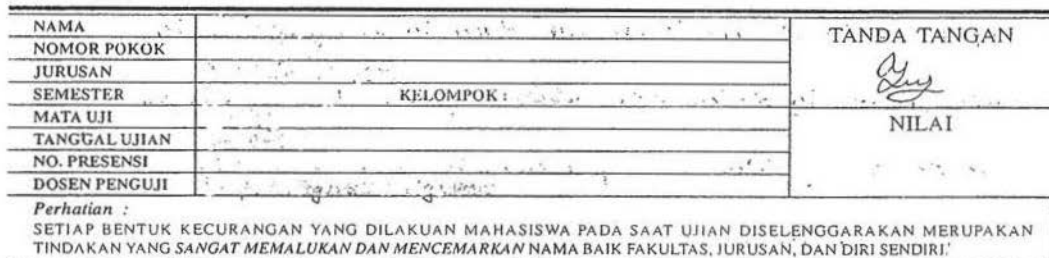 NAMA
TANDA TANGAN
NOMOR POKOK
JURUSAN
SEMESTER KELOMPOK :
MATA UJI
NILAI
TANGGAL UJIAN
NO. PRESENSI
DOSEN PENGUJI
Perhatian :
SETIAP BENTUK KECURANGAN YANG DILAKUAN MAHASISWA PADA SAAT UJIAN DISELENGGARAKAN MERUPAKAN
TINDAKAN YANG SANGAT MEMALUKAN DAN MENCEMARKAN NAMA BAIK FAKULTAS, JURUSAN, DAN DIRI SENDIRI.